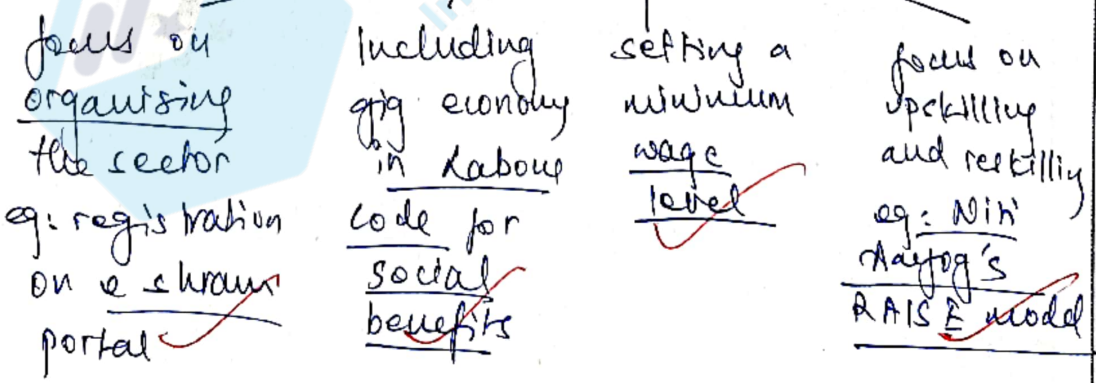 focus on
organising
the sector
eg: registration
on e shram
portal
Including
gig economy
in Labour
code for
social
benefits
setting a
minimum
wage
level
focus on
upskilling
and reskilling
eg: Niti
Aayog's
RAISE model